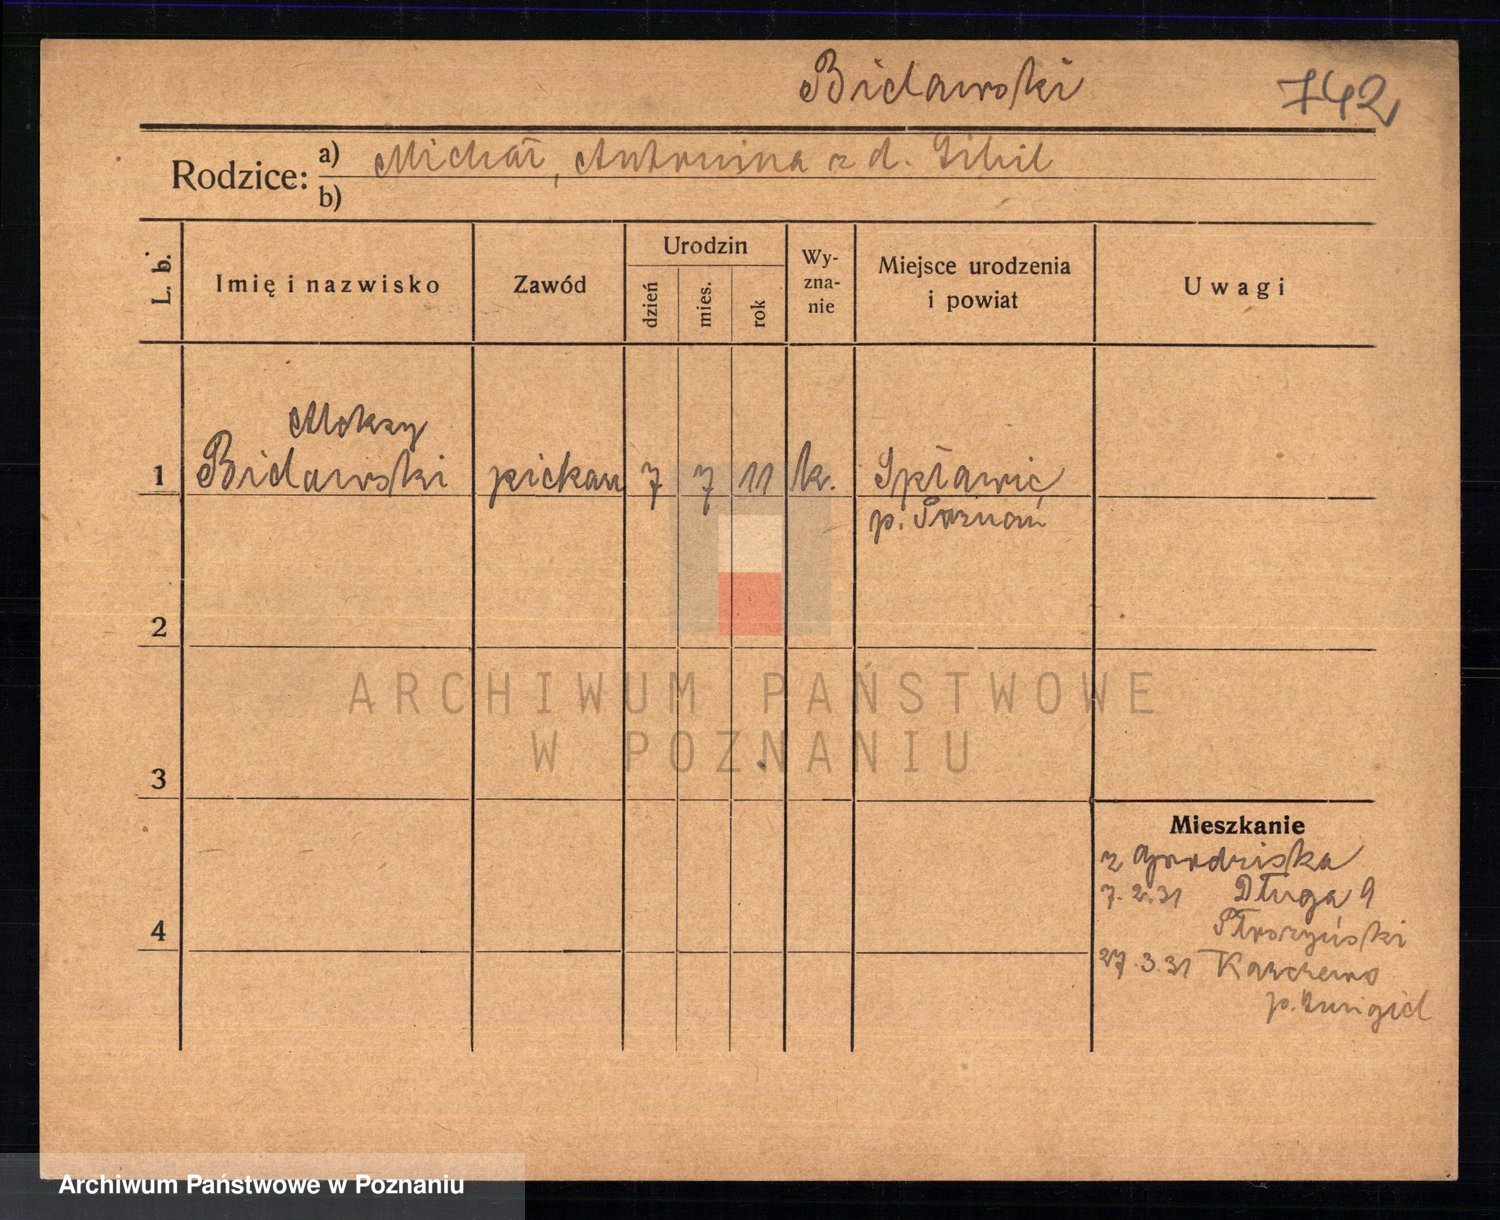 Bielawski 742
Rodzice: a) Michał, Antonina z d.
b)
L. b.
Imię i nazwisko
Zawód
Urodzin
dzień
mies.
rok
Wy-
zna-
nie
Miejsce urodzenia
i powiat
Uwagi
Alokzy
1 Bielawski piekarz 7 7 11 k. Spławie
p. Poznań
2
3
4
Mieszkanie
z Grodziska
7.2.31 Długa 9
27.3.31 Karczewo
ARCHIWUM PAŃSTWOWE
W POZNANIU
Archiwum Państwowe w Poznaniu